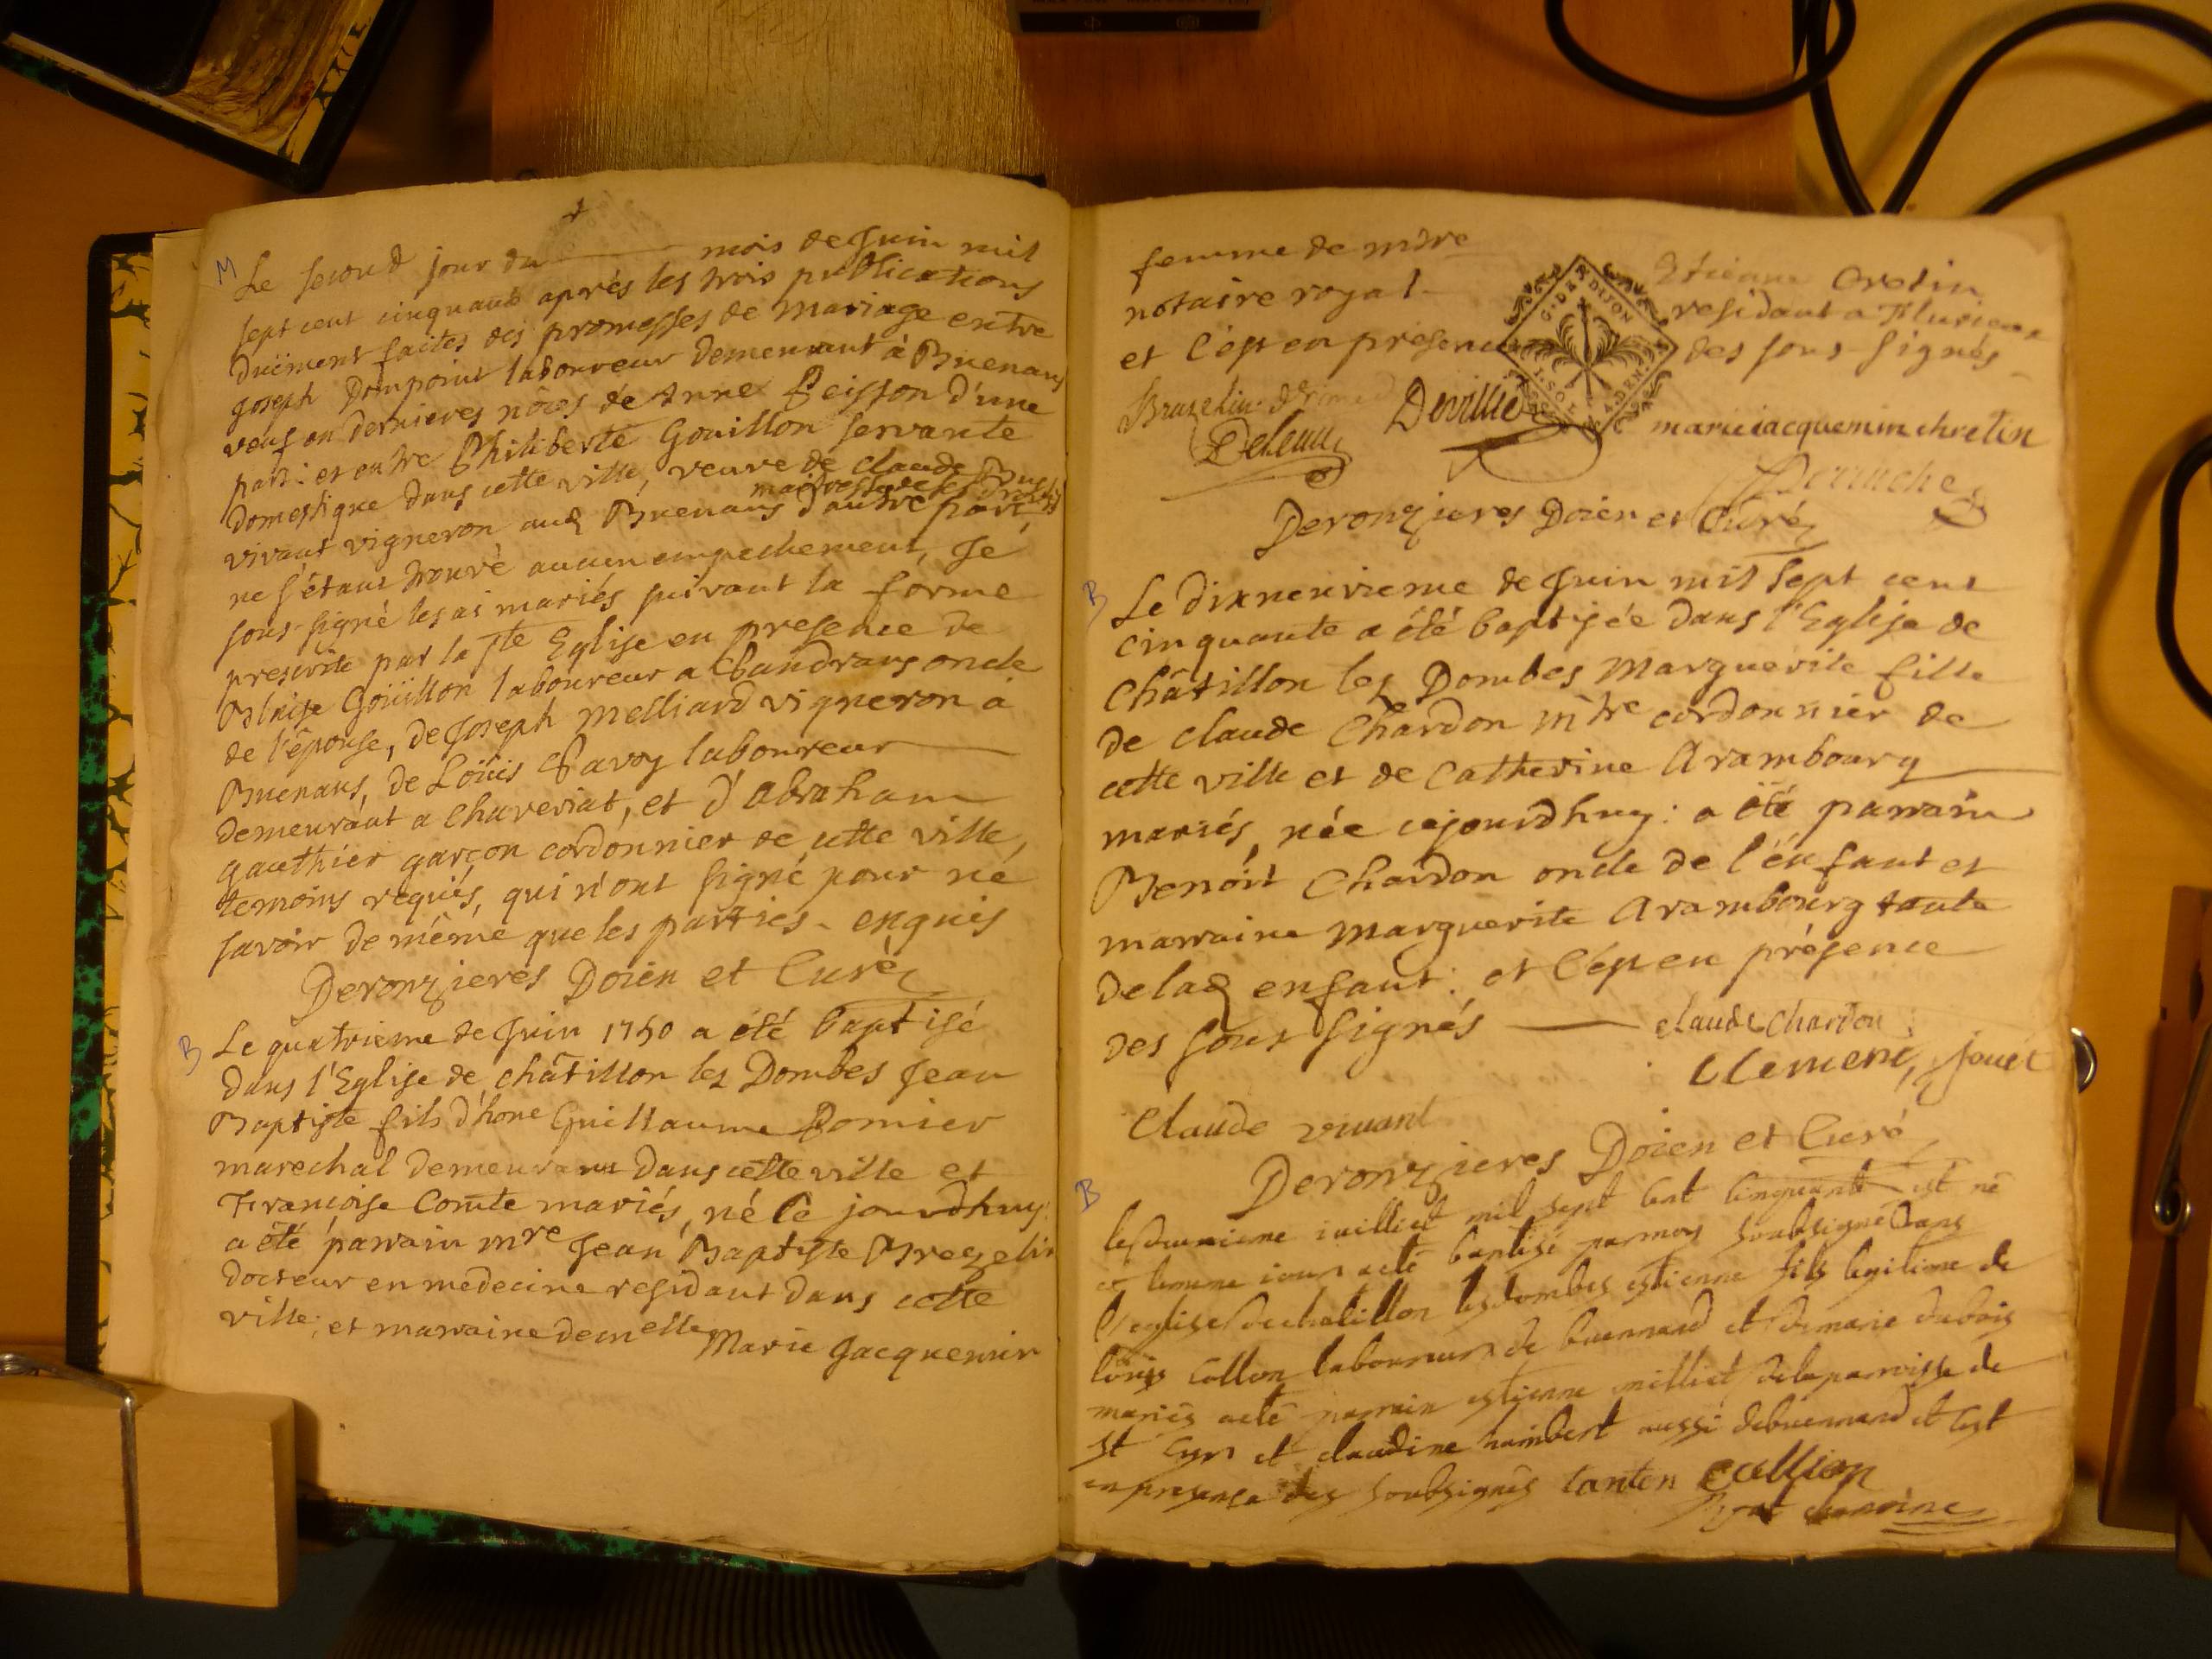 M
Le second jour du mois de Juin mil
sept cent cinquante après les trois publications
duëment faites des promesses de mariage entre
Joseph Dompoint laboureur demeurant à Buenans
veuf en dernieres nôces de Anne Peisson d'une
part: et entre Philiberte Gouillon servante
domestique dans cette ville, veuve de claude
maitresse de ses droits
vivant vigneron aud Buenans d'autre part,
ne s'étant trouvé aucun empechement, Je
sous-signé les ai mariés suivant la forme
prescrite par la Ste Eglise en presence de
Blaise Goüillon laboureur a Chandrans oncle
de l'épouse, de Joseph Melliard vigneron à
Buenans, de Loüis Pavoy laboureur
demeurant a Chaveriat, et d'Abraham
gauthier garçon cordonnier de cette ville,
temoins requis, qui n'ont signé pour ne
savoir de même que les parties. enquis
Deronzieres Doien et Curé
B
Le quatrieme de Juin 1750 a été baptisé
dans l'Eglise de châtillon les Dombes Jean
Baptiste fils d'hone Guillaume Pomier
marechal demeurant dans cette ville et
Françoise Comte mariés, né le jourdhuy:
a été parrain mre Jean Baptiste Brezelin
docteur en medecine residant dans cette
ville; et marraine demelle Marie Jacquemin
femme de mtre Etienne Cretin
notaire royal residant a
et c'est en presence des sous-signés
G. DE DIJON
Devillie
Deleau
marie iacquemin chretin
Perruche
Deronzieres Doien et Curé
B
Le dixneuvieme de Juin mil sept cent
cinquante a été baptisée dans l'Eglise de
Châtillon les Dombes Marguerite fille
de claude Chardon mtre cordonnier de
cette ville et de Catherine Arambourg
mariés, née cejourdhuy: a été parrain
Benoit Chardon oncle de l'enfant et
marraine Marguerite Arambourg tante
de lad enfant: et c'est en présence
des sous signés claude chardon
Clement, Jouet
Claude vivant
Deronzieres Doien et Curé
B
le deuxieme iuilliet mil sept cent cinquante est né
et lememe iour a eté baptisé par moy soubsigné dans
l'eglise de chatillon les dombes estienne fils legitime de
louis Collon laboureur de buennand et de marie dubois
mariés a eté parrain estienne milliet de la paroisse de
st Cyr et claudine humbert aussi de buennand et cest
en presence des soubsignés tanton Collion
chanoine